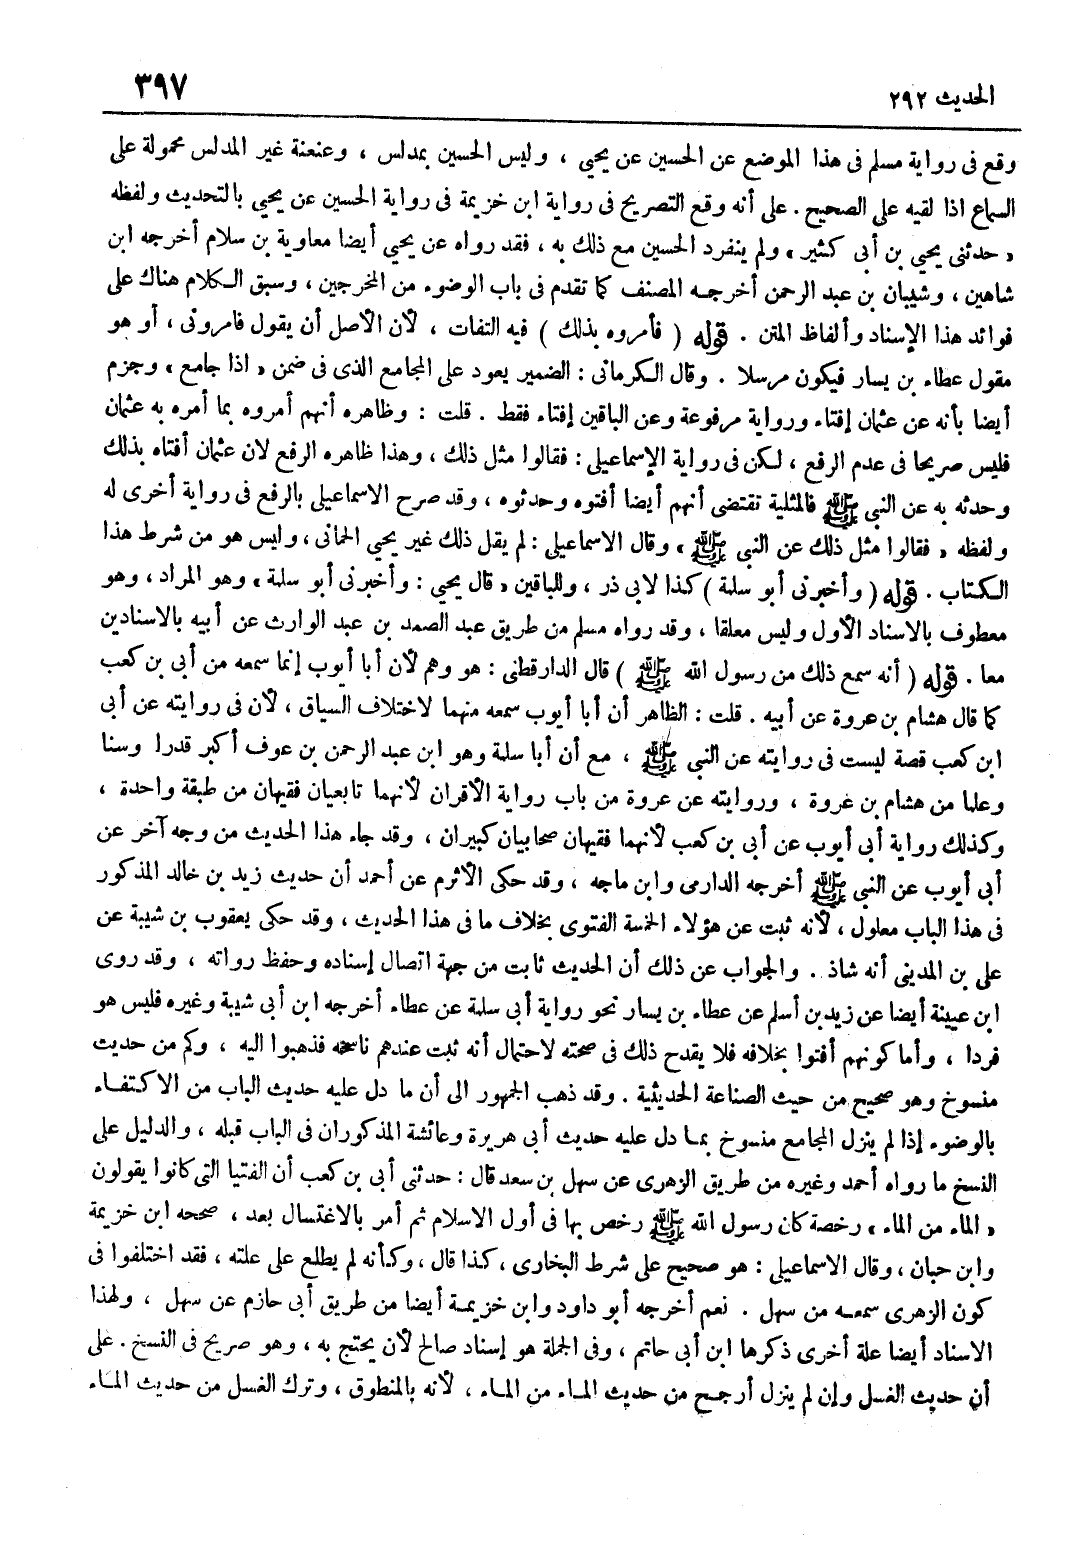 الحديث ٢٩٢ ٣٩٧
وقع فى رواية مسلم فى هذا الموضع عن الحسين عن يحيى ، وليس الحسين بمدلس ، وعنعنة غير المدلس محمولة على
السماع اذا لقيه على الصحيح . على أنه وقع التصريح فى رواية ابن خزيمة فى رواية الحسين عن يحيى بالتحديث ولفظه
« حدثنى يحيى بن أبى كثير » ولم ينفرد الحسين مع ذلك به ، فقد رواه عن يحيى أيضا معاوية بن سلام أخرجه ابن
شاهين ، وشيبان بن عبد الرحمن أخرجه المصنف كما تقدم فى باب الوضوء من المخرجين ، وسبق الكلام هناك على
فوائد هذا الإسناد وألفاظ المتن . قوله ( فأمروه بذلك ) فيه التفات ، لأن الأصل أن يقول فامرونى ، أو هو
مقول عطاء بن يسار فيكون مرسلا . وقال الكرمانى : الضمير يعود على المجامع الذى فى ضمن « اذا جامع » وجزم
أيضا بأنه عن عثمان إفتاء ورواية مرفوعة وعن الباقين إفتاء فقط . قلت : وظاهره أنهم أمروه بما أمره به عثمان
فليس صريحا فى عدم الرفع ، لكن فى رواية الإسماعيلى : فقالوا مثل ذلك ، وهذا ظاهره الرفع لان عثمان أفتاه بذلك
وحدثه به عن النبى ﷺ فالمثلية تقتضى أنهم أيضا أفتوه وحدثوه ، وقد صرح الاسماعيلى بالرفع فى رواية أخرى له
ولفظه « فقالوا مثل ذلك عن النبى ﷺ » وقال الاسماعيلى : لم يقل ذلك غير يحيى الحمانى ، وليس هو من شرط هذا
الكتاب . قوله ( وأخبرنى أبو سلمة ) كذا لابى ذر ، وللباقين « قال يحيى : وأخبرنى أبو سلمة » وهو المراد ، وهو
معطوف بالاسناد الأول وليس معلقا ، وقد رواه مسلم من طريق عبد الصمد بن عبد الوارث عن أبيه بالاسنادين
معا . قوله ( أنه سمع ذلك من رسول الله ﷺ ) قال الدارقطنى : هو وهم لأن أبا أيوب إنما سمعه من أبى بن كعب
كما قال هشام بن عروة عن أبيه . قلت : الظاهر أن أبا أيوب سمعه منهما لاختلاف السياق ، لأن فى روايته عن أبى
ابن كعب قصة ليست فى روايته عن النبى ﷺ ، مع أن أبا سلمة وهو ابن عبد الرحمن بن عوف أكبر قدرا وسنا
وعلما من هشام بن عروة ، وروايته عن عروة من باب رواية الأقران لأنهما تابعيان فقيهان من طبقة واحدة ،
وكذلك رواية أبى أيوب عن أبى بن كعب لأنهما فقيهان صحابيان كبيران ، وقد جاء هذا الحديث من وجه آخر عن
أبى أيوب عن النبى ﷺ أخرجه الدارمى وابن ماجه ، وقد حكى الأثرم عن أحمد أن حديث زيد بن خالد المذكور
فى هذا الباب معلول ، لأنه ثبت عن هؤلاء الخمسة الفتوى بخلاف ما فى هذا الحديث ، وقد حكى يعقوب بن شيبة عن
على بن المدينى أنه شاذ . والجواب عن ذلك أن الحديث ثابت من جهة اتصال إسناده وحفظ رواته ، وقد روى
ابن عيينة أيضا عن زيد بن أسلم عن عطاء بن يسار نحو رواية أبى سلمة عن عطاء أخرجه ابن أبى شيبة وغيره فليس هو
فردا ، وأما كونهم أفتوا بخلافه فلا يقدح ذلك فى صحته لاحتمال أنه ثبت عندهم ناسخه فذهبوا اليه ، وكم من حديث
منسوخ وهو صحيح من حيث الصناعة الحديثية . وقد ذهب الجمهور الى أن ما دل عليه حديث الباب من الاكتفاء
بالوضوء إذا لم ينزل المجامع منسوخ بما دل عليه حديث أبى هريرة وعائشة المذكوران فى الباب قبله ، والدليل على
النسخ ما رواه أحمد وغيره من طريق الزهرى عن سهل بن سعد قال : حدثنى أبى بن كعب أن الفتيا التى كانوا يقولون
« الماء من الماء » رخصة كان رسول الله ﷺ رخص بها فى أول الاسلام ثم أمر بالاغتسال بعد ، صححه ابن خزيمة
وابن حبان ، وقال الاسماعيلى : هو صحيح على شرط البخارى ، كذا قال ، وكأنه لم يطلع على علته ، فقد اختلفوا فى
كون الزهرى سمعه من سهل . نعم أخرجه أبو داود وابن خزيمة أيضا من طريق أبى حازم عن سهل ، ولهذا
الاسناد أيضا علة أخرى ذكرها ابن أبى حاتم ، وفى الجملة هو إسناد صالح لأن يحتج به ، وهو صريح فى النسخ . على
أن حديث الغسل وإن لم ينزل أرجح من حديث الماء من الماء ، لأنه بالمنطوق ، وترك الغسل من حديث الماء